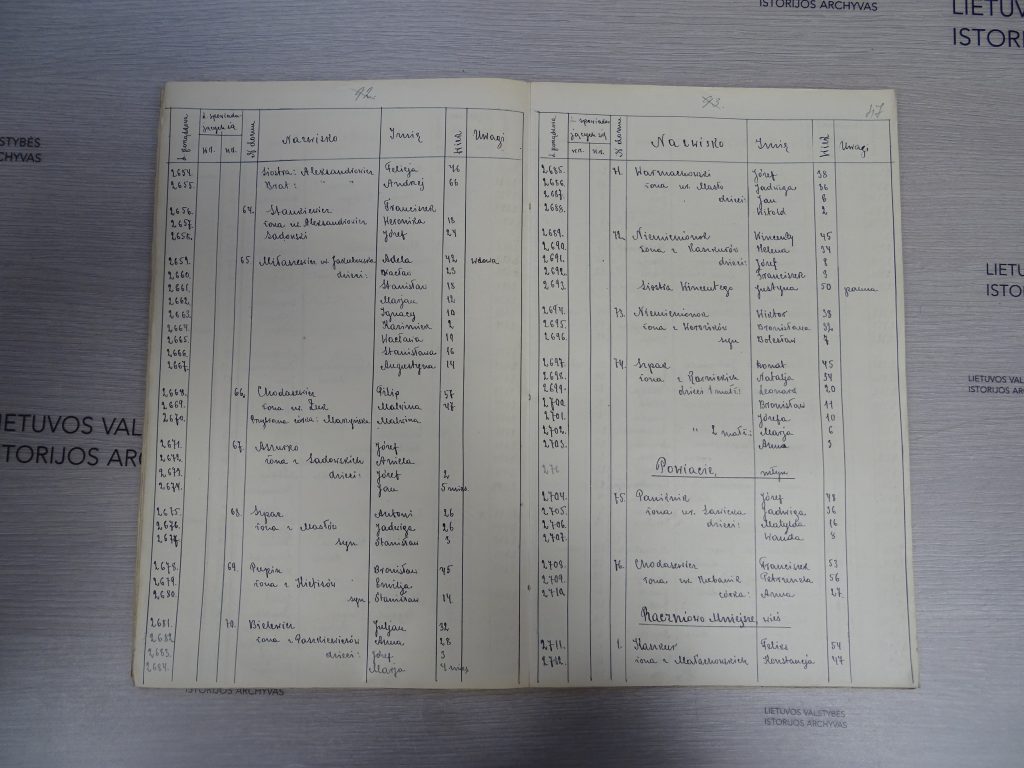 ISTORIJOS ARCHYVAS
LIETUV
ISTORI
STYBĖS
ARCHYVAS
LIETUVOS VAL
ISTORIJOS ARCH
LIETU
ISTO
LIETUVOS VALS
ISTORIJOS A
ISTORIJOS ARCHYVAS
LIETUVOS VALSTYBĖS
ISTORIJOS ARCHYVAS
92.
№ domu Nazwisko Imię Wiek Uwagi
2654. Siostra: Aleksandrowicz Felicja 76
2655. Brat: " " Andrzej 66
2656. 64. Stankiewicz Franciszek
2657. żona ur. Aleksandrowicz Weronika 18
2658. Sadowski Józef 24
2659. 65. Milaszewicz ur. Jakubowska Adela 42 wdowa
2660. dzieci: Wacław 23
2661. Stanisław 18
2662. Marjan 12
2663. Ignacy 10
2664. Kazimierz 2
2665. Wacława 19
2666. Stanisława 16
2667. Augustyna 14
2668. 66. Chodasewicz Filip 57
2669. żona ur. Żuk Malwina 47
2670. Przybrana córka: Malwina
2671. 67. Józef
2672. żona z Sadowskich Aniela
2673. dzieci: Józef 2
2674. Jan 5 mies.
2675. 68. Szpak Antoni 26
2676. żona z Masłów Jadwiga 26
2677. syn Stanisław 3
2678. 69. Pupin Bronisław 45
2679. żona z Emilja
2680. syn Stanisław 14.
2681. 70. Bielewicz Juljan 32
2682. żona z Paszkiewiczów Anna 28
2683. dzieci: Józef 3
2684. Marja 4 mies.
93.
47
№ domu Nazwisko Imię Wiek Uwagi
2685. 71. Warmakowski Józef 38
2686. żona ur. Masło Jadwiga 36
2687. dzieci: Jan 6
2688. Witold 2
2689. 72. Niemienionok Wincenty 45
2690. żona z Kaszkurów Helena 34
2691. dzieci: Józef 8
2692. Franciszek 3
2693. Siostra Wincentego Justyna 50 panna
2694. 73. Niemienionok Wiktor 38
2695. żona z Bronisława 32
2696. syn Bolesław 7
2697. 74. Szpak Donat 45
2698. żona z Natalja 34
2699. dzieci 1 małż.: Leonard 20
2700. Bronisław 11
2701. Józefa 10
2702. " 2 małż.: Marja 6
2703. Anna 3
Powiacie, młyn
2704. 75. Paniźnik Józef 48
2705. żona ur. Sawicka Jadwiga 36
2706. dzieci: Matylda 16
2707. Wanda 8
2708. 76. Chodasewicz Franciszek 53
2709. żona ur. Petronela 56
2710. córka: Anna 27
Raczniowo Mniejsze, wieś
2711. 1. Kaszkur Feliks 54
2712. żona z Małachowskich Konstancja 47